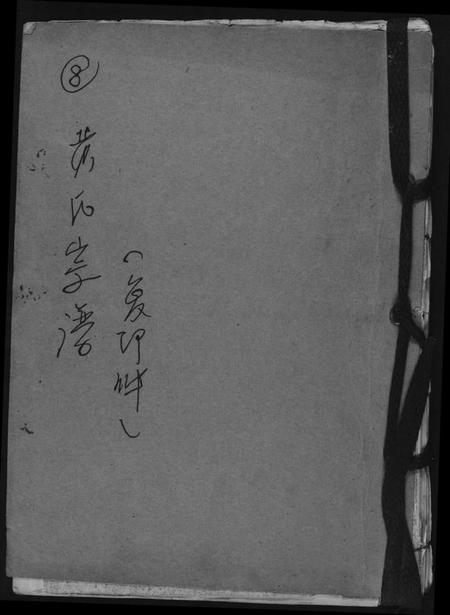 ⑧
黄氏宗谱
（复印件）